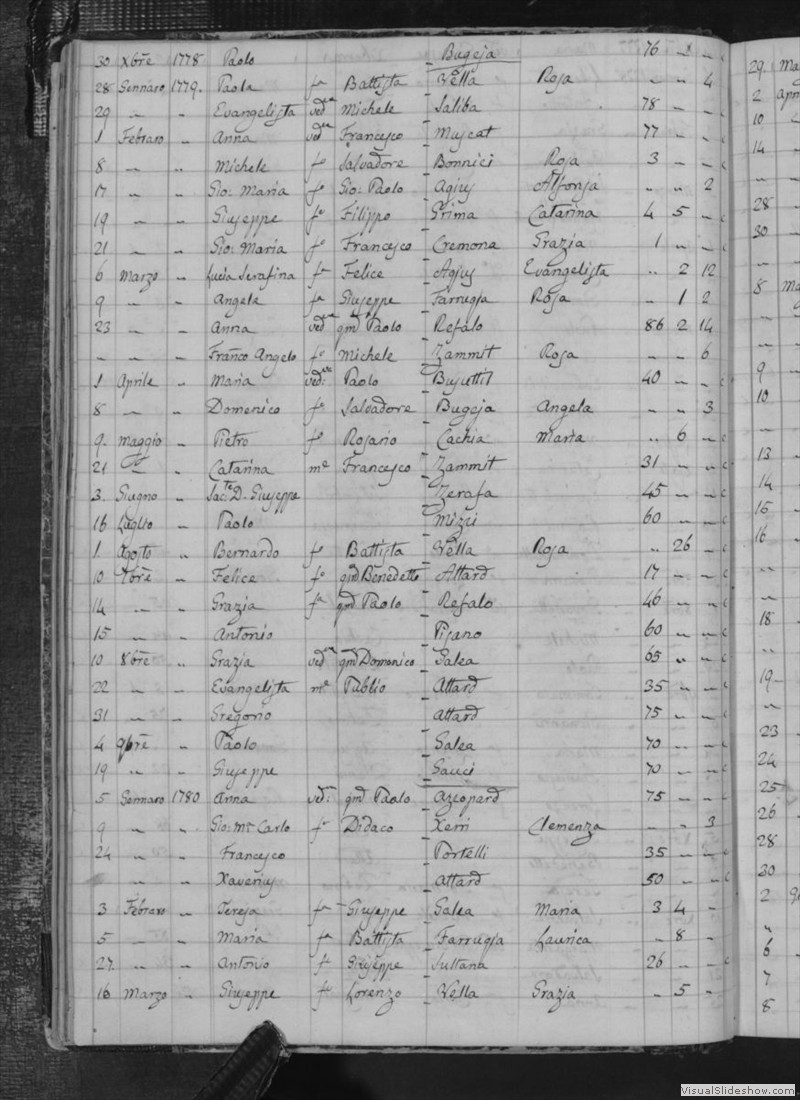 30 Xbre 1778 Paolo Bugeja 76 2 „
28 Gennaro 1779. Paola fa Battista Vella Rosa „ „ 4
29 „ „ Evangelista veda Michele Saliba 78 „ „
1 Febraro „ Anna veda Francesco Muscat 77 „ „
8 „ „ Michele fo Salvadore Bonnici Rosa 3 „ „
17 „ „ Gio: Maria fo Gio: Paolo Agius Alfonsa „ „ 2
19 „ „ Giuseppe fo Filippo Grima Catarina 4 5 „
21 „ „ Gio: Maria fo Francesco Cremona Grazia 1 „ „
6 Marzo „ Lucia Serafina fa Felice Agius Evangelista „ 2 12
9 „ „ Angela fa Giuseppe Farrugia Rosa „ 1 2
23 „ „ Anna veda qm Paolo Refalo 86 2 14
„ „ „ Franco Angelo fo Michele Zammit Rosa „ „ 6
1 Aprile „ Maria ved: Paolo Busuttil 40 „ „
8 „ „ Domenico fo Salvadore Bugeja Angela „ „ 3
9. Maggio „ Pietro fo Rosario Cachia Maria „ 6 „
21 „ „ Catarina me Francesco Zammit 31 „ „
3. Giugno „ Sacte D. Giuseppe Zerafa 45 „ „
16 Luglio „ Paolo Mizzi 60 „ „
1 Agosto „ Bernardo fo Battista Vella Rosa „ 26 „
10 7bre „ Felice fo qm Benedetto Attard 17 „ „
14 „ „ Grazia fa qm Paolo Refalo 46 „ „
15 „ „ Antonio Pisano 60 „ „
10 8bre „ Grazia veda qm Domenico Galea 65 „ „
22 „ „ Evangelista me Publio Attard 35 „ „
31 „ „ Gregorio Attard 75 „ „
4 9bre „ Paolo Galea 70 „ „
19 „ „ Giuseppe Gauci 70 „ „
5 Gennaro 1780 Anna ved: qm Paolo Azzopard 75 „ „
9 „ „ Gio: Ma Carlo fo Didaco Xerri Clemenza „ „ 3
24 „ „ Francesco Portelli 35 „ „
„ „ Xaverius Attard 50 „ „
3 Febraro „ Teresa fa Giuseppe Galea Maria 3 4 „
5 „ „ Maria fa Battista Farrugia Laurica „ 8 „
27 „ „ Antonio fo Giuseppe Sultana 26 „ „
16 Marzo „ Giuseppe fo Lorenzo Vella Grazia „ 5 „
29
2
10
14
28
30
8
9
10
13
14
15
16
18
19
23
24
25
26
28
30
2
6
7
8
VisualSlideshow.com